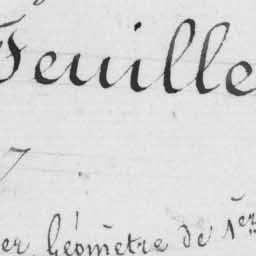 Feuille
er, Géomètre de 1er